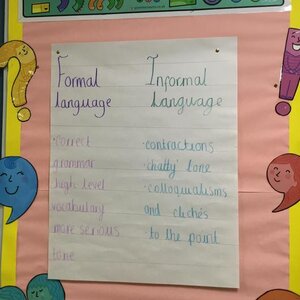 Formal
language
·correct
grammar
high level
vocabulary
more serious
tone
Informal
Language
·contractions
·'chatty' tone
·colloquialisms
and clichés
to the point